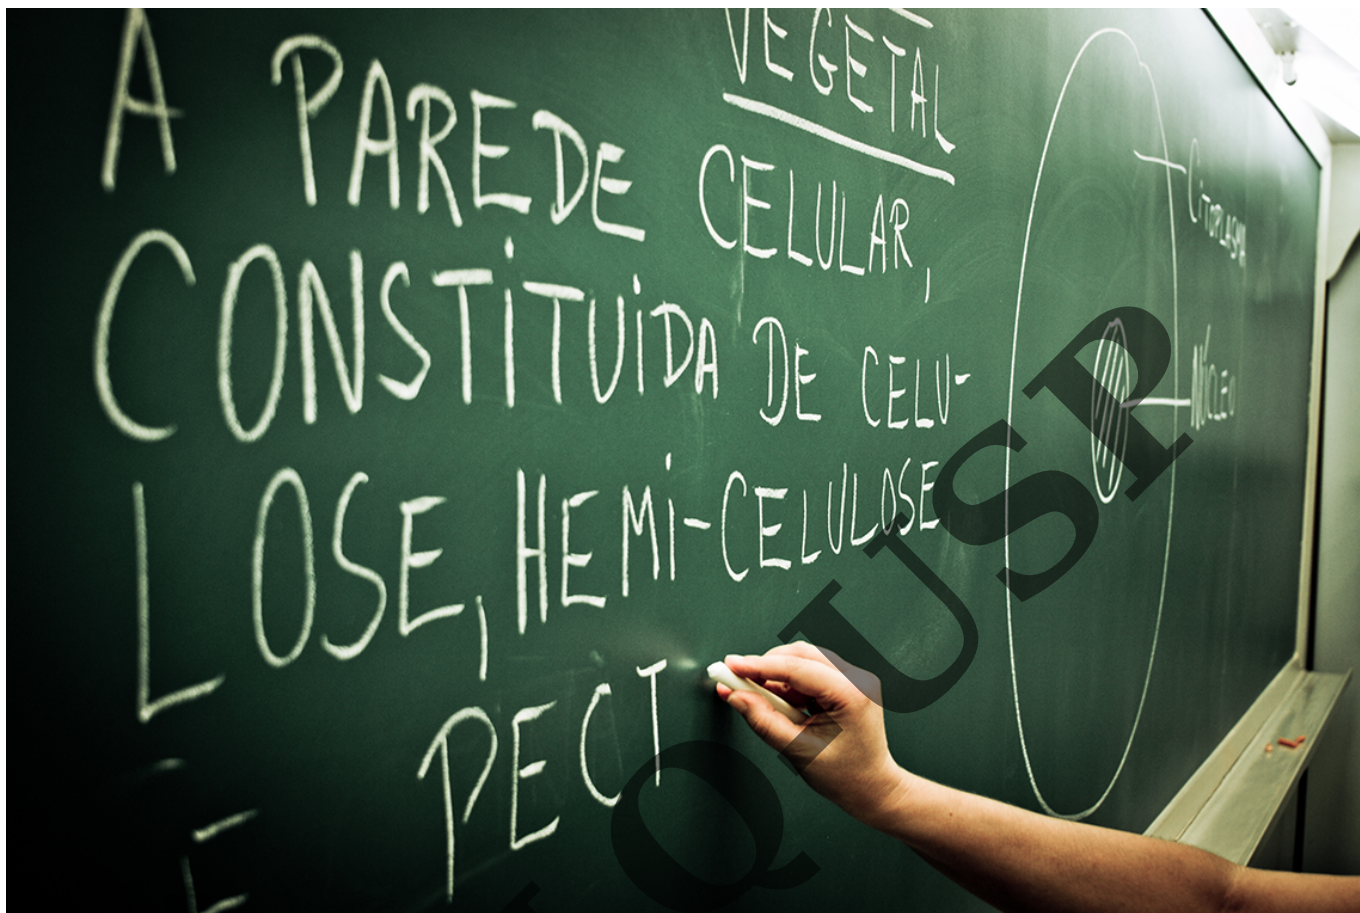 VEGETAL
A PAREDE CELULAR,
CONSTITUIDA DE CELU-
LOSE, HEMI-CELULOSE
E PECT
CITOPLASMA
NÚCLEO
QUSP